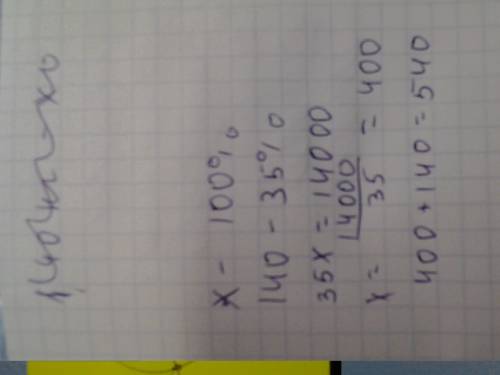 x - 100%
140 - 35%
35x = 14000
x = 14000/35 = 400
400 + 140 = 540